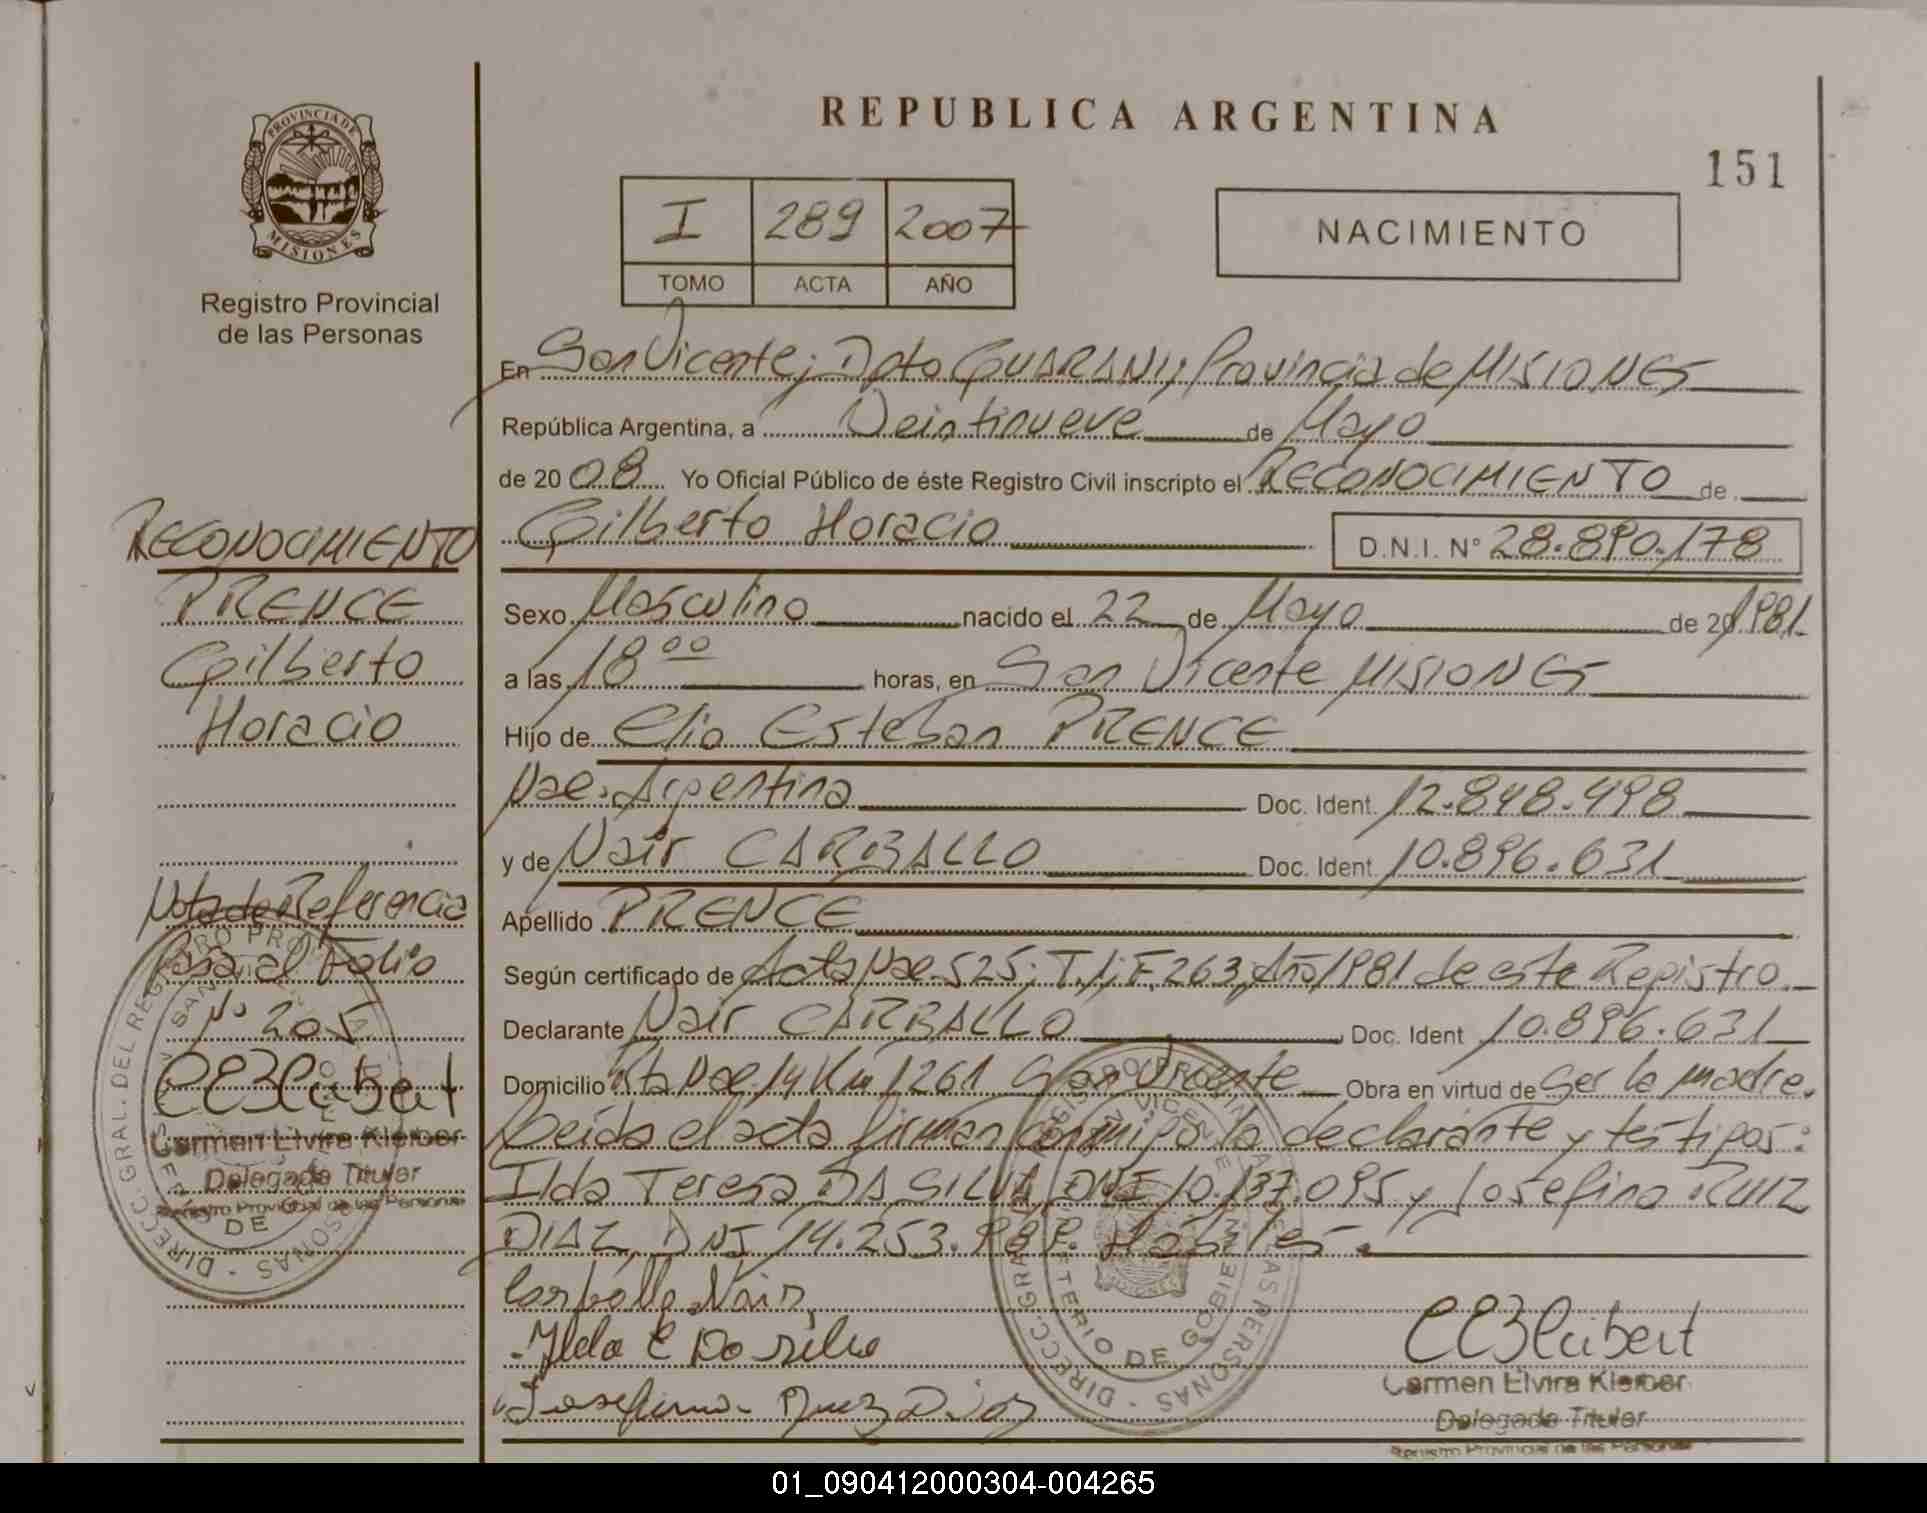 PROVINCIA DE
MISIONES
Registro Provincial
de las Personas
REPUBLICA ARGENTINA
151
I 289 2007
TOMO ACTA AÑO
NACIMIENTO
En San Vicente; Dpto GUARANI, Provincia de MISIONES
República Argentina, a Veintinueve de Mayo
de 20 08 Yo Oficial Público de éste Registro Civil inscripto el RECONOCIMIENTO de
Gilberto Horacio D.N.I. Nº 28.890.178
Sexo Masculino nacido el 22 de Mayo de 20 1981
a las 18 00 horas, en San Vicente MISIONES
Hijo de Elio Esteban PRENCE
Nac. Argentina Doc. Ident. 12.848.498
y de Nair CARBALLO Doc. Ident. 10.896.631
Apellido PRENCE
Según certificado de Acta Nac. 525; T.I; F. 263, Año 1981 de este Registro
Declarante Nair CARBALLO Doc. Ident 10.896.631
Domicilio Rta Nac. 14 Km 1261 San Vicente Obra en virtud de ser la madre.
Leída el acta firman conmigo la declarante y testigos:
Ilda Teresa DA SILVA DNI 10.137.095 y Josefina RUIZ
DIAZ, DNI 14.253.989. Hábiles.
Carballo Nair
Josefina Ruiz Diaz
Carmen Elvira Kleiber
Delegada Titular
Registro Provincial de las Personas
RECONOCIMIENTO
PRENCE
Gilberto
Horacio
Nota de Referencia
Pasa al Folio
Nº 205
Carmen Elvira Kleiber
Delegada Titular
Registro Provincial de las Personas
01_090412000304-004265